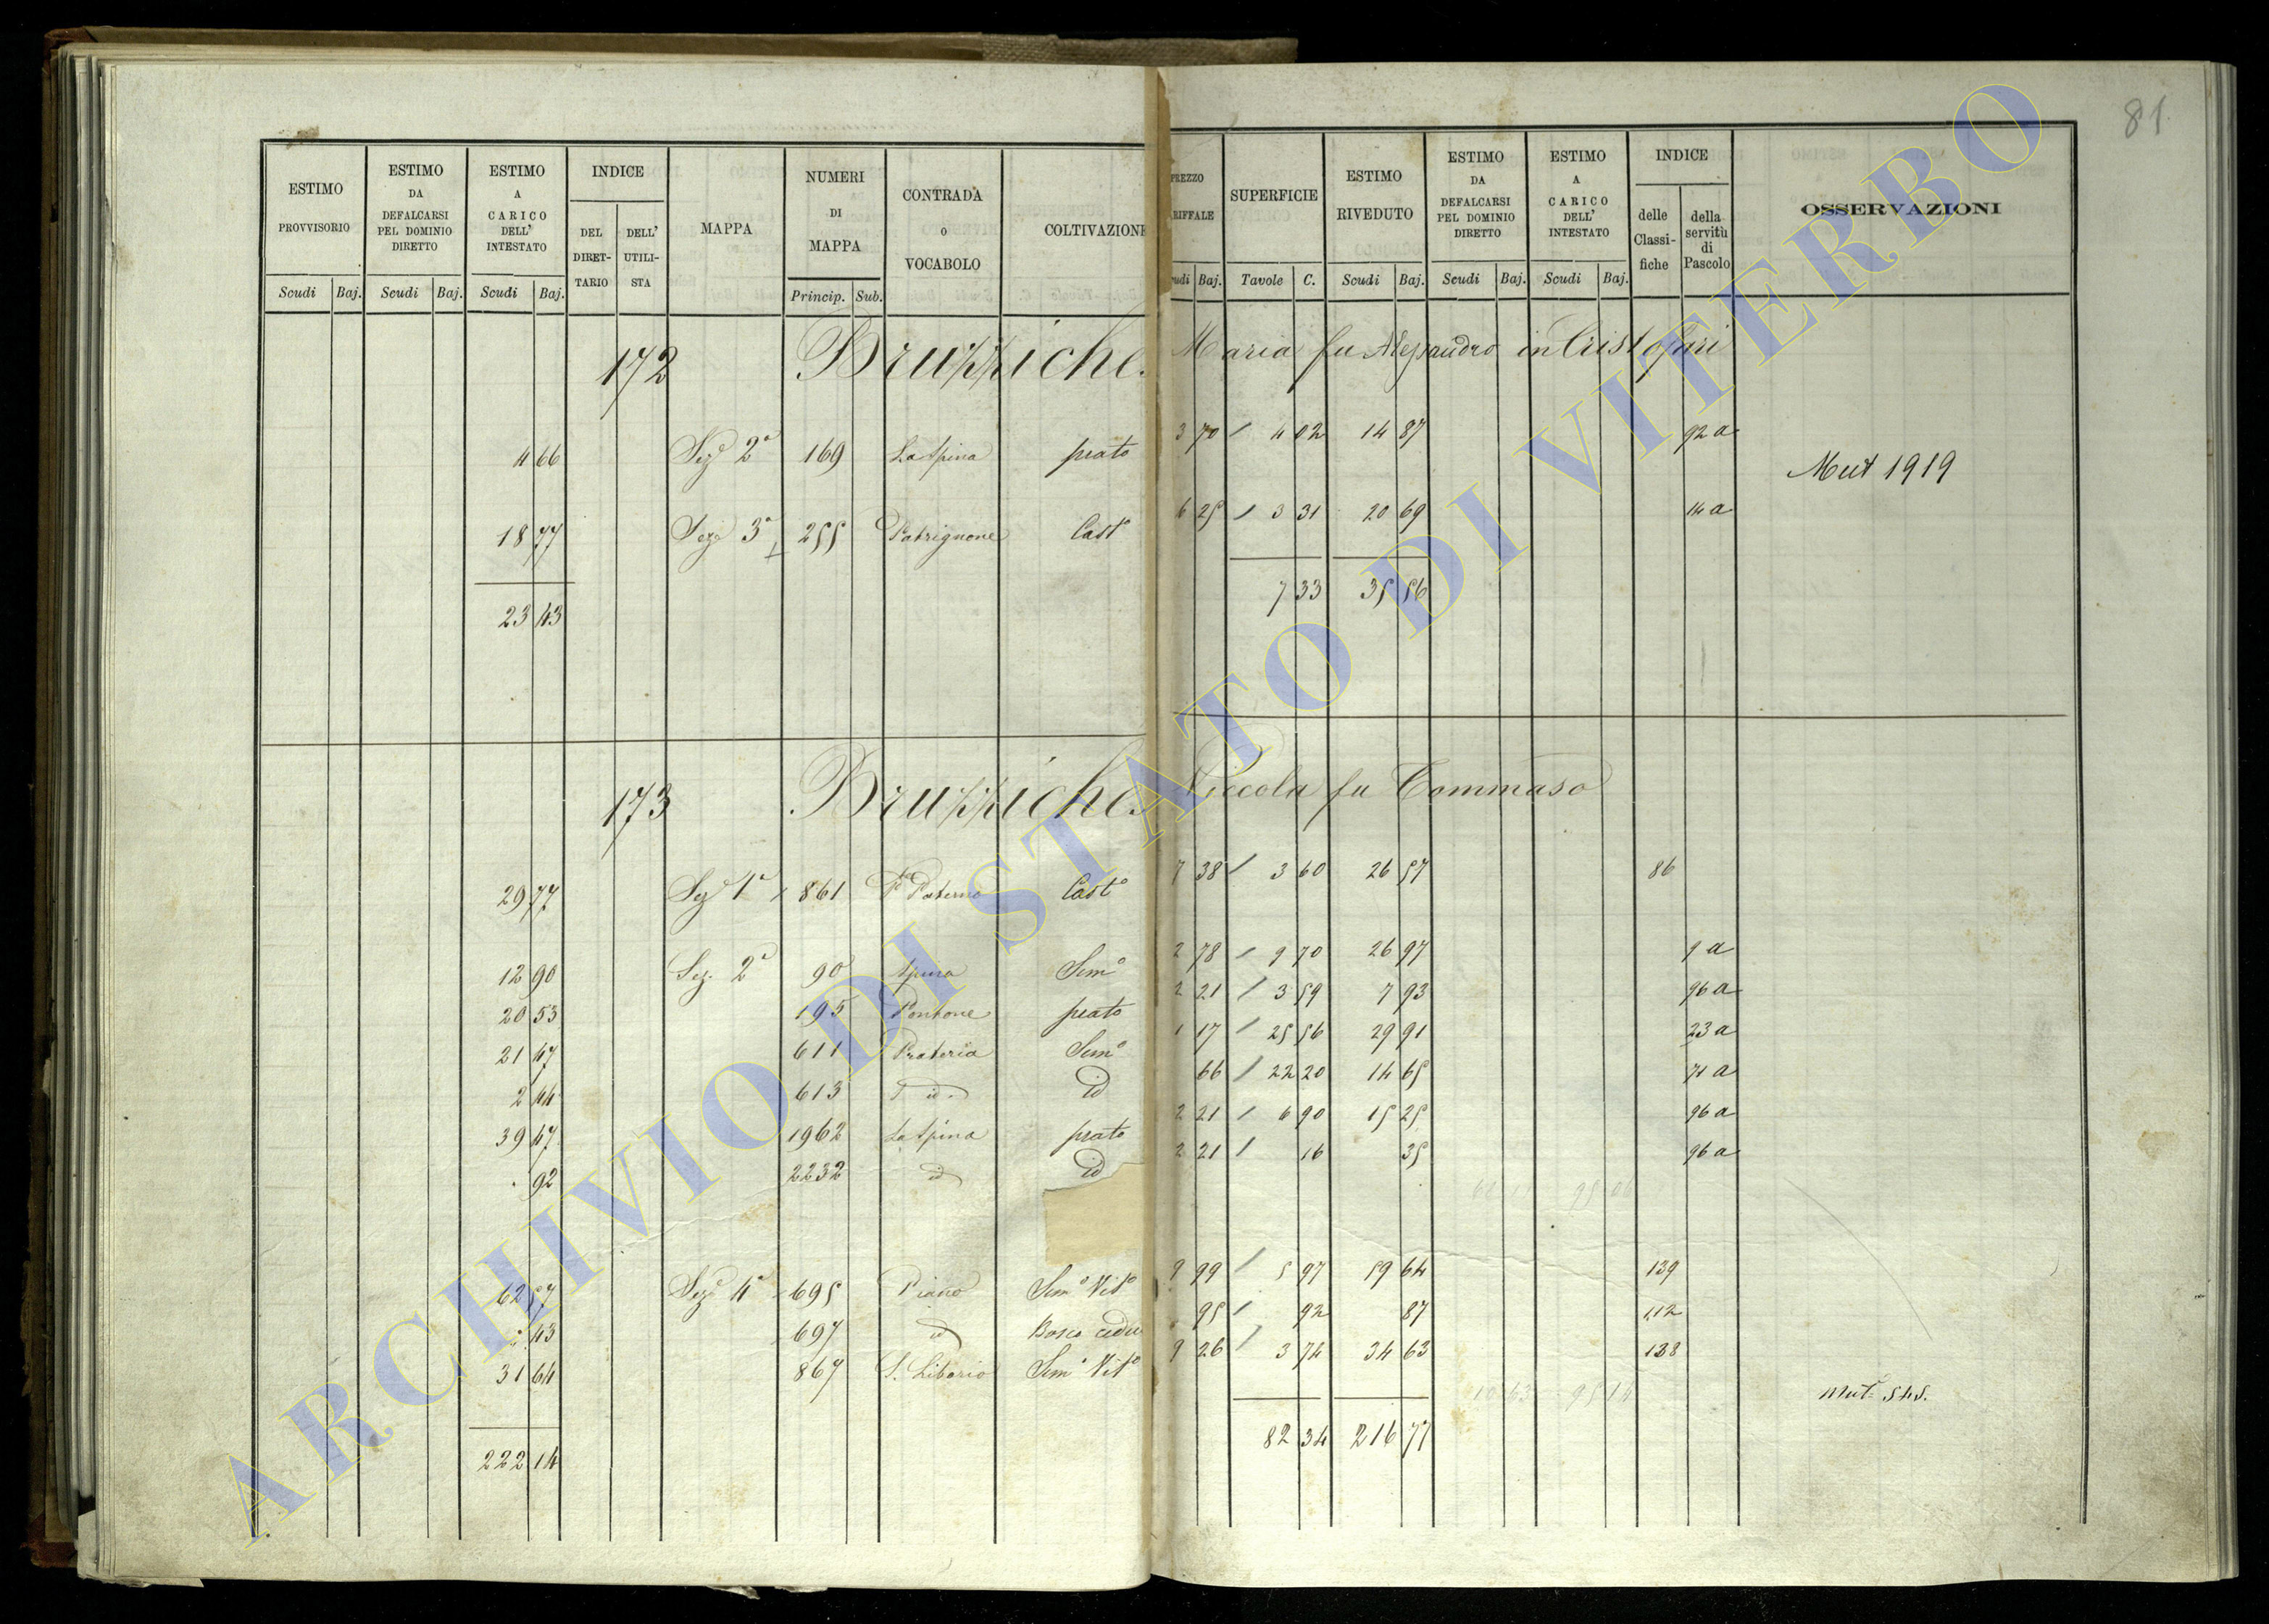 81
ESTIMO PROVVISORIO
ESTIMO DA DEFALCARSI PEL DOMINIO DIRETTO
ESTIMO A CARICO DELL' INTESTATO
INDICE
DEL DIRET-TARIO
DELL' UTILI-STA
MAPPA
NUMERI DI MAPPA
CONTRADA O VOCABOLO
COLTIVAZIONE
PREZZO TARIFFALE
SUPERFICIE
ESTIMO RIVEDUTO
ESTIMO DA DEFALCARSI PEL DOMINIO DIRETTO
ESTIMO A CARICO DELL' INTESTATO
INDICE
delle Classi-fiche
della servitù di Pascolo
OSSERVAZIONI
Scudi Baj. Scudi Baj. Scudi Baj. Princip. Sub. Scudi Baj. Tavole C. Scudi Baj. Scudi Baj. Scudi Baj.
172 Bruzziches Maria fu Alessandro in Cristofari
4 66 Sez 2a 169 La Spina prato 3 70 / 4 02 14 87 92 a
Mut 1919
18 77 Sez 3a 255 Patrignone Casto 6 25 / 3 31 20 69 14 a
23 43 7 33 35 56
173 Bruzziches Niccola fu Tommaso
29 77 Sez 1a 861 Paterno Casto 7 38 / 3 60 26 57 86
12 90 Sez. 2a 90 Spina Semo 2 78 / 9 70 26 97 9 a
20 53 195 Pontone prato 2 21 / 3 59 7 93 96 a
21 47 611 Prateria Semo 1 17 / 25 56 29 91 23 a
2 44 613 id id 66 / 22 20 14 65 71 a
39 47 1962 La Spina prato 2 21 / 6 90 15 25 96 a
92 2232 id id 2 21 / 16 35 96 a
62 57 Sez 4a 695 Piano Semo Vito 9 99 / 5 97 59 64 139
43 697 id Bosco cedu 95 / 92 87 112
31 64 867 S. Liborio Semo Vito 9 26 / 3 74 34 63 138
Mut. 545.
222 14 82 34 216 77
ARCHIVIO DI STATO DI VITERBO